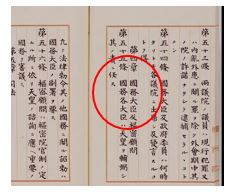 第五十三條 兩議院ノ議員ハ現行犯罪又ハ
内亂外患ニ關ル罪ヲ除ク外會期中其
ノ院ノ許諾ナクシテ逮捕セラルヽコト
ナシ
第五十四條 國務大臣及政府委員ハ何時
タリトモ各議院ニ出席シ及發言スルコ
トヲ得
第四章 國務大臣及樞密顧問
第五十五條 國務各大臣ハ天皇ヲ輔弼シ
其ノ責ニ任ス
凡テ法律勅令其ノ他國務ニ關ル詔勅ハ
國務大臣ノ副署ヲ要ス
第五十六條 樞密顧問ハ樞密院官制ノ定
ムル所ニ依リ天皇ノ諮詢ニ應ヘ重要ノ
國務ヲ審議ス
第五章 司法